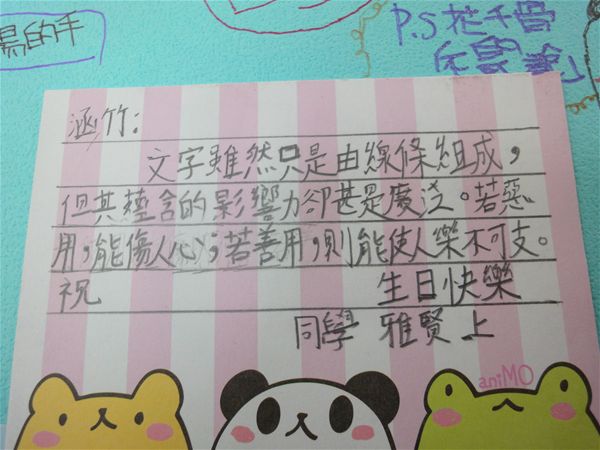 易的手
P.S 花千骨
涵竹:
文字雖然只是由線條組成，
但其蘊含的影響力卻甚是廣泛。若惡
用，能傷人心；若善用，則能使人樂不可支。
祝 生日快樂
同學 雅賢 上
aniMO